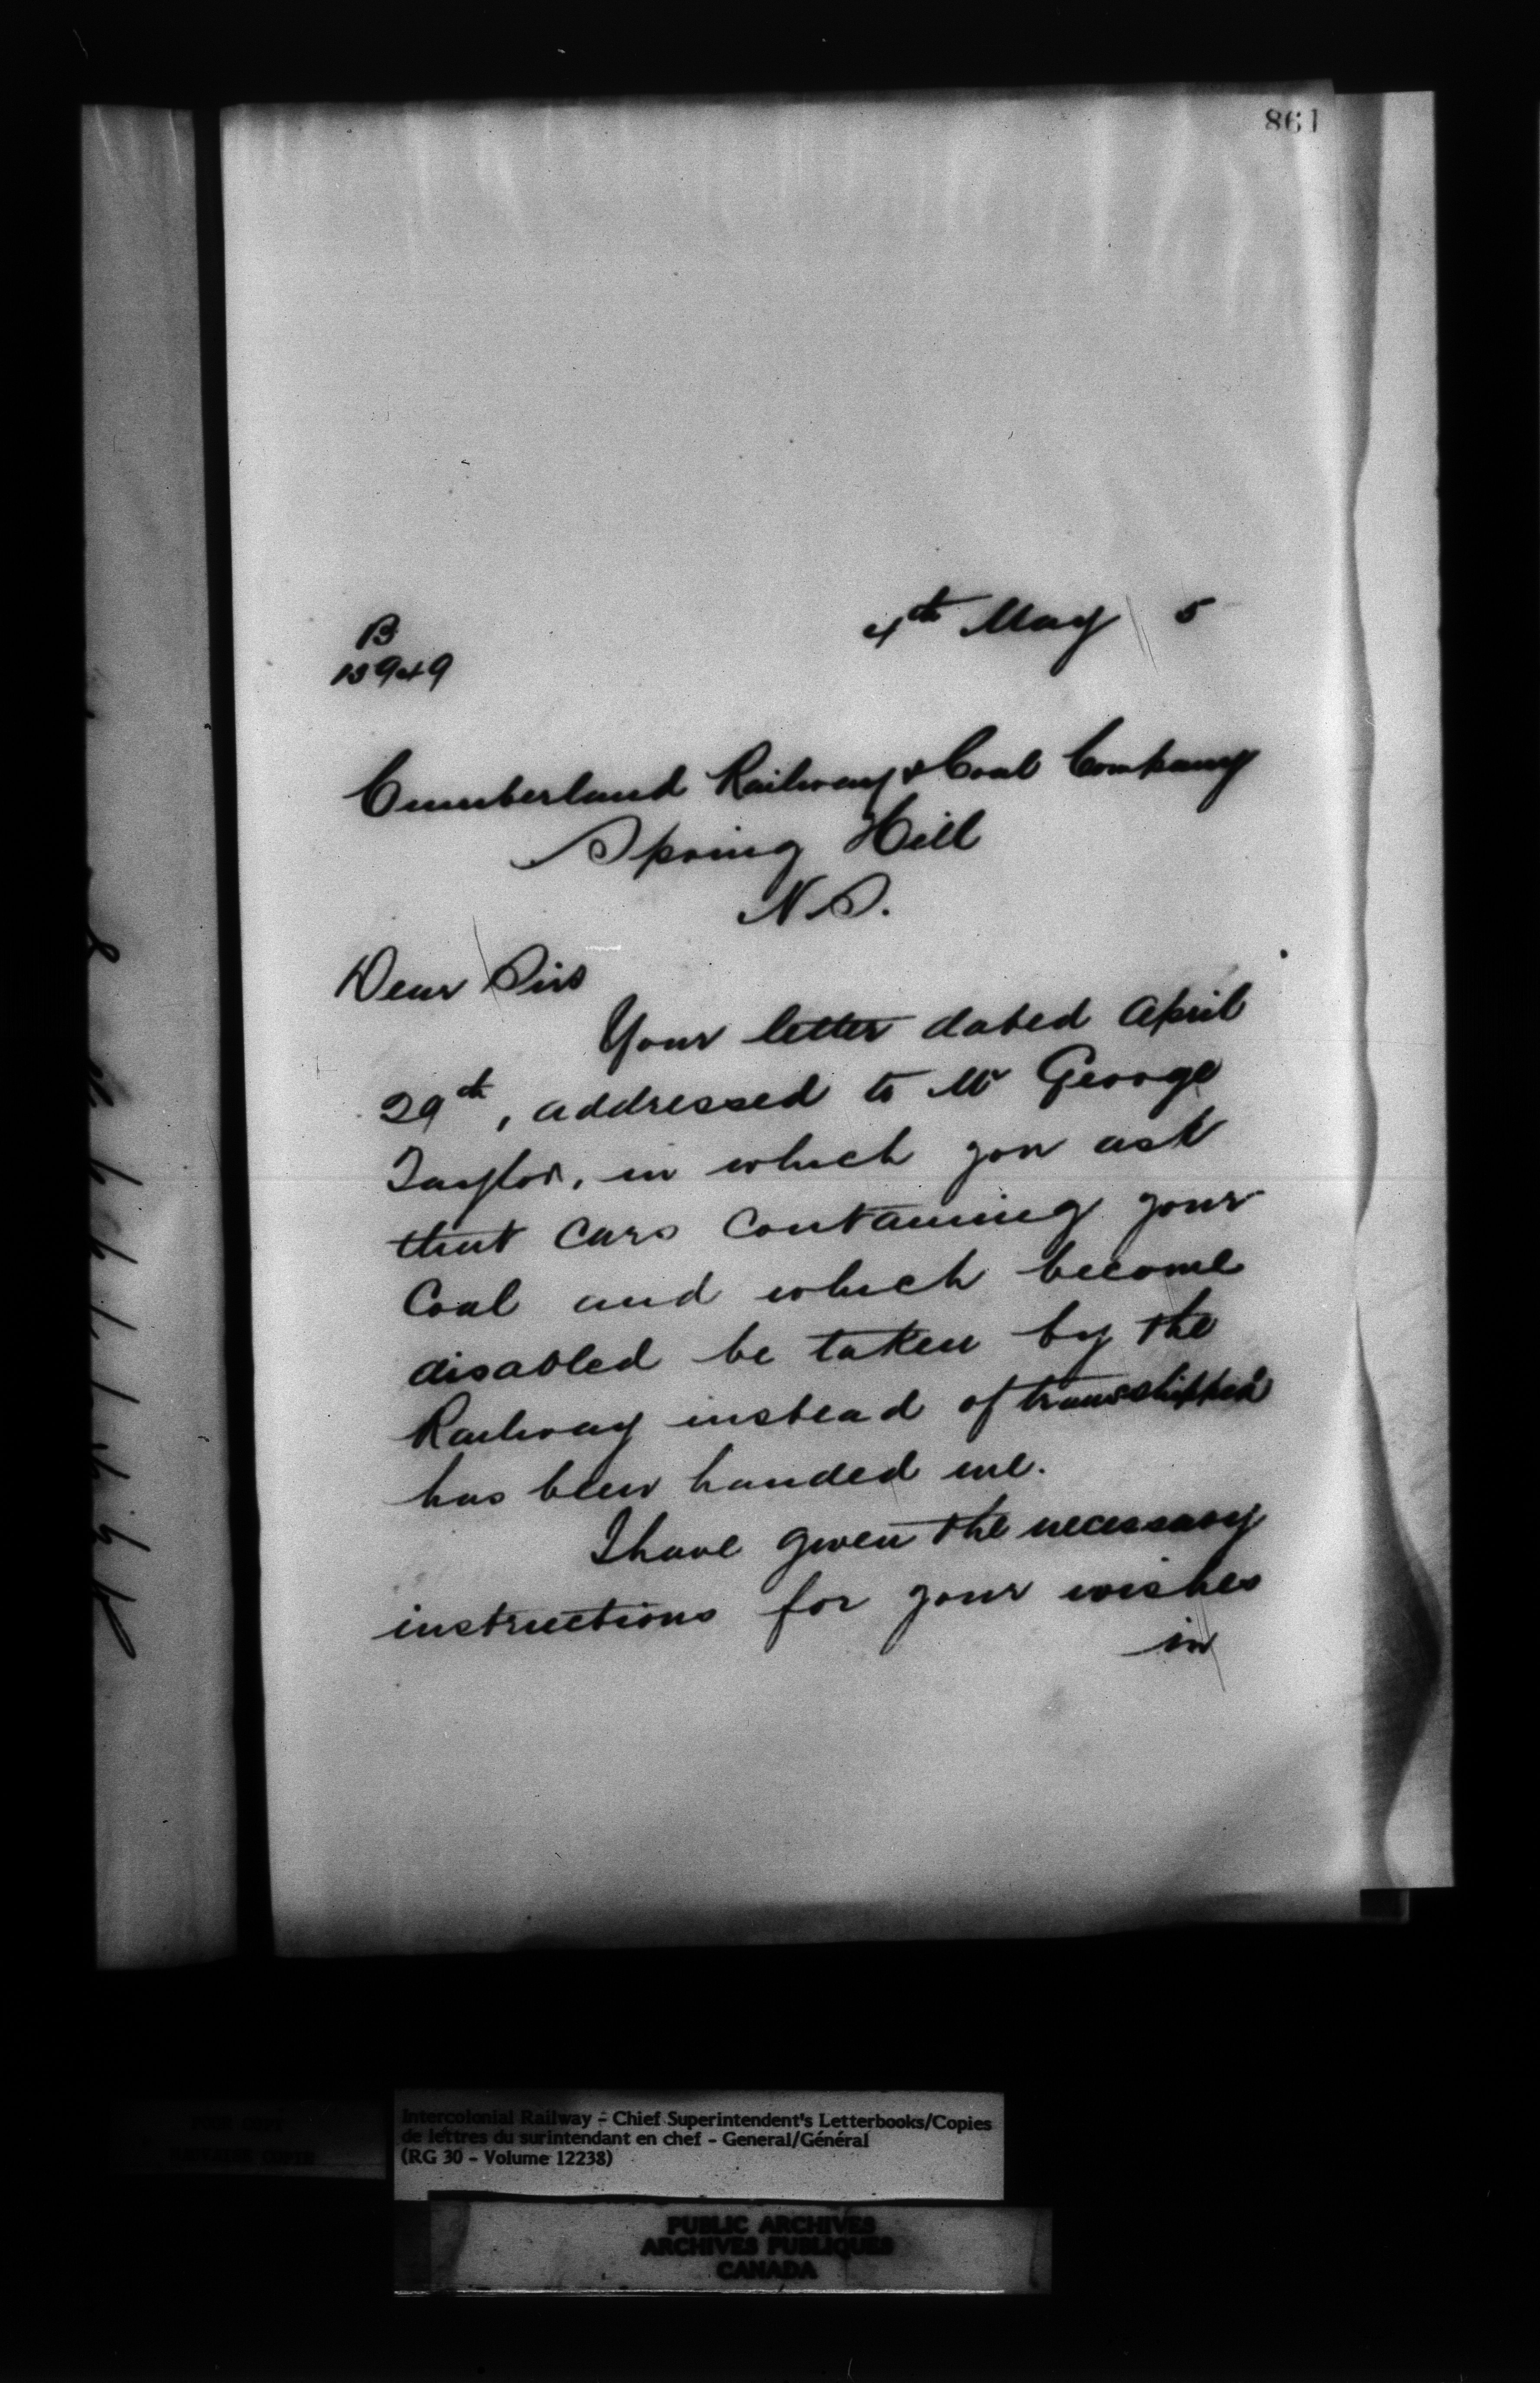 861
B
13949
4th May 5
Cumberland Railway & Coal Company
Spring Hill
N.S.
Dear Sirs
Your letter dated April
29th, addressed to Mr George
Taylor, in which you ask
that cars containing your
Coal and which become
disabled be taken by the
Railway instead of transshipped
has been handed me.
I have given the necessary
instructions for your wishes
in
Intercolonial Railway - Chief Superintendent's Letterbooks/Copies
de lettres du surintendant en chef - General/Général
(RG 30 - Volume 12238)
PUBLIC ARCHIVES
ARCHIVES PUBLIQUES
CANADA